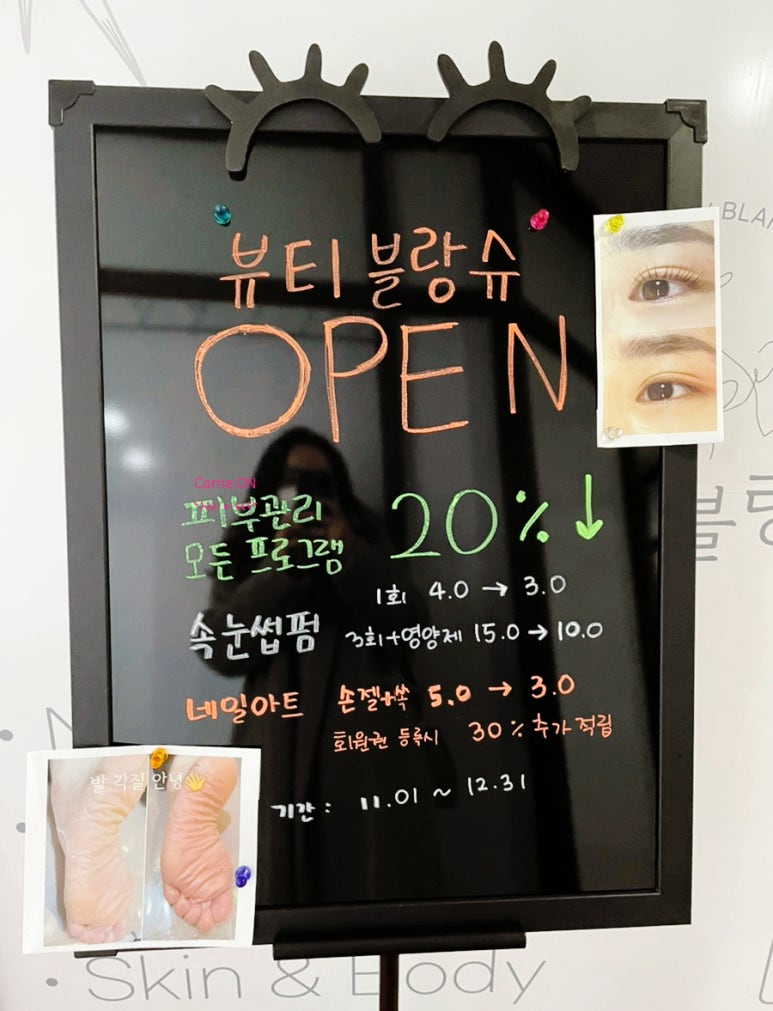 뷰티블랑슈
OPEN
Carrie ON
피부관리
모든 프로그램
20%↓
속눈썹펌
1회 4.0 → 3.0
3회+영양제 15.0 → 10.0
네일아트
손젤+쏙 5.0 → 3.0
회원권 등록시 30% 추가 적립
기간: 11.01 ~ 12.31
발 각질 안녕👋
BLAN
· Skin & Body